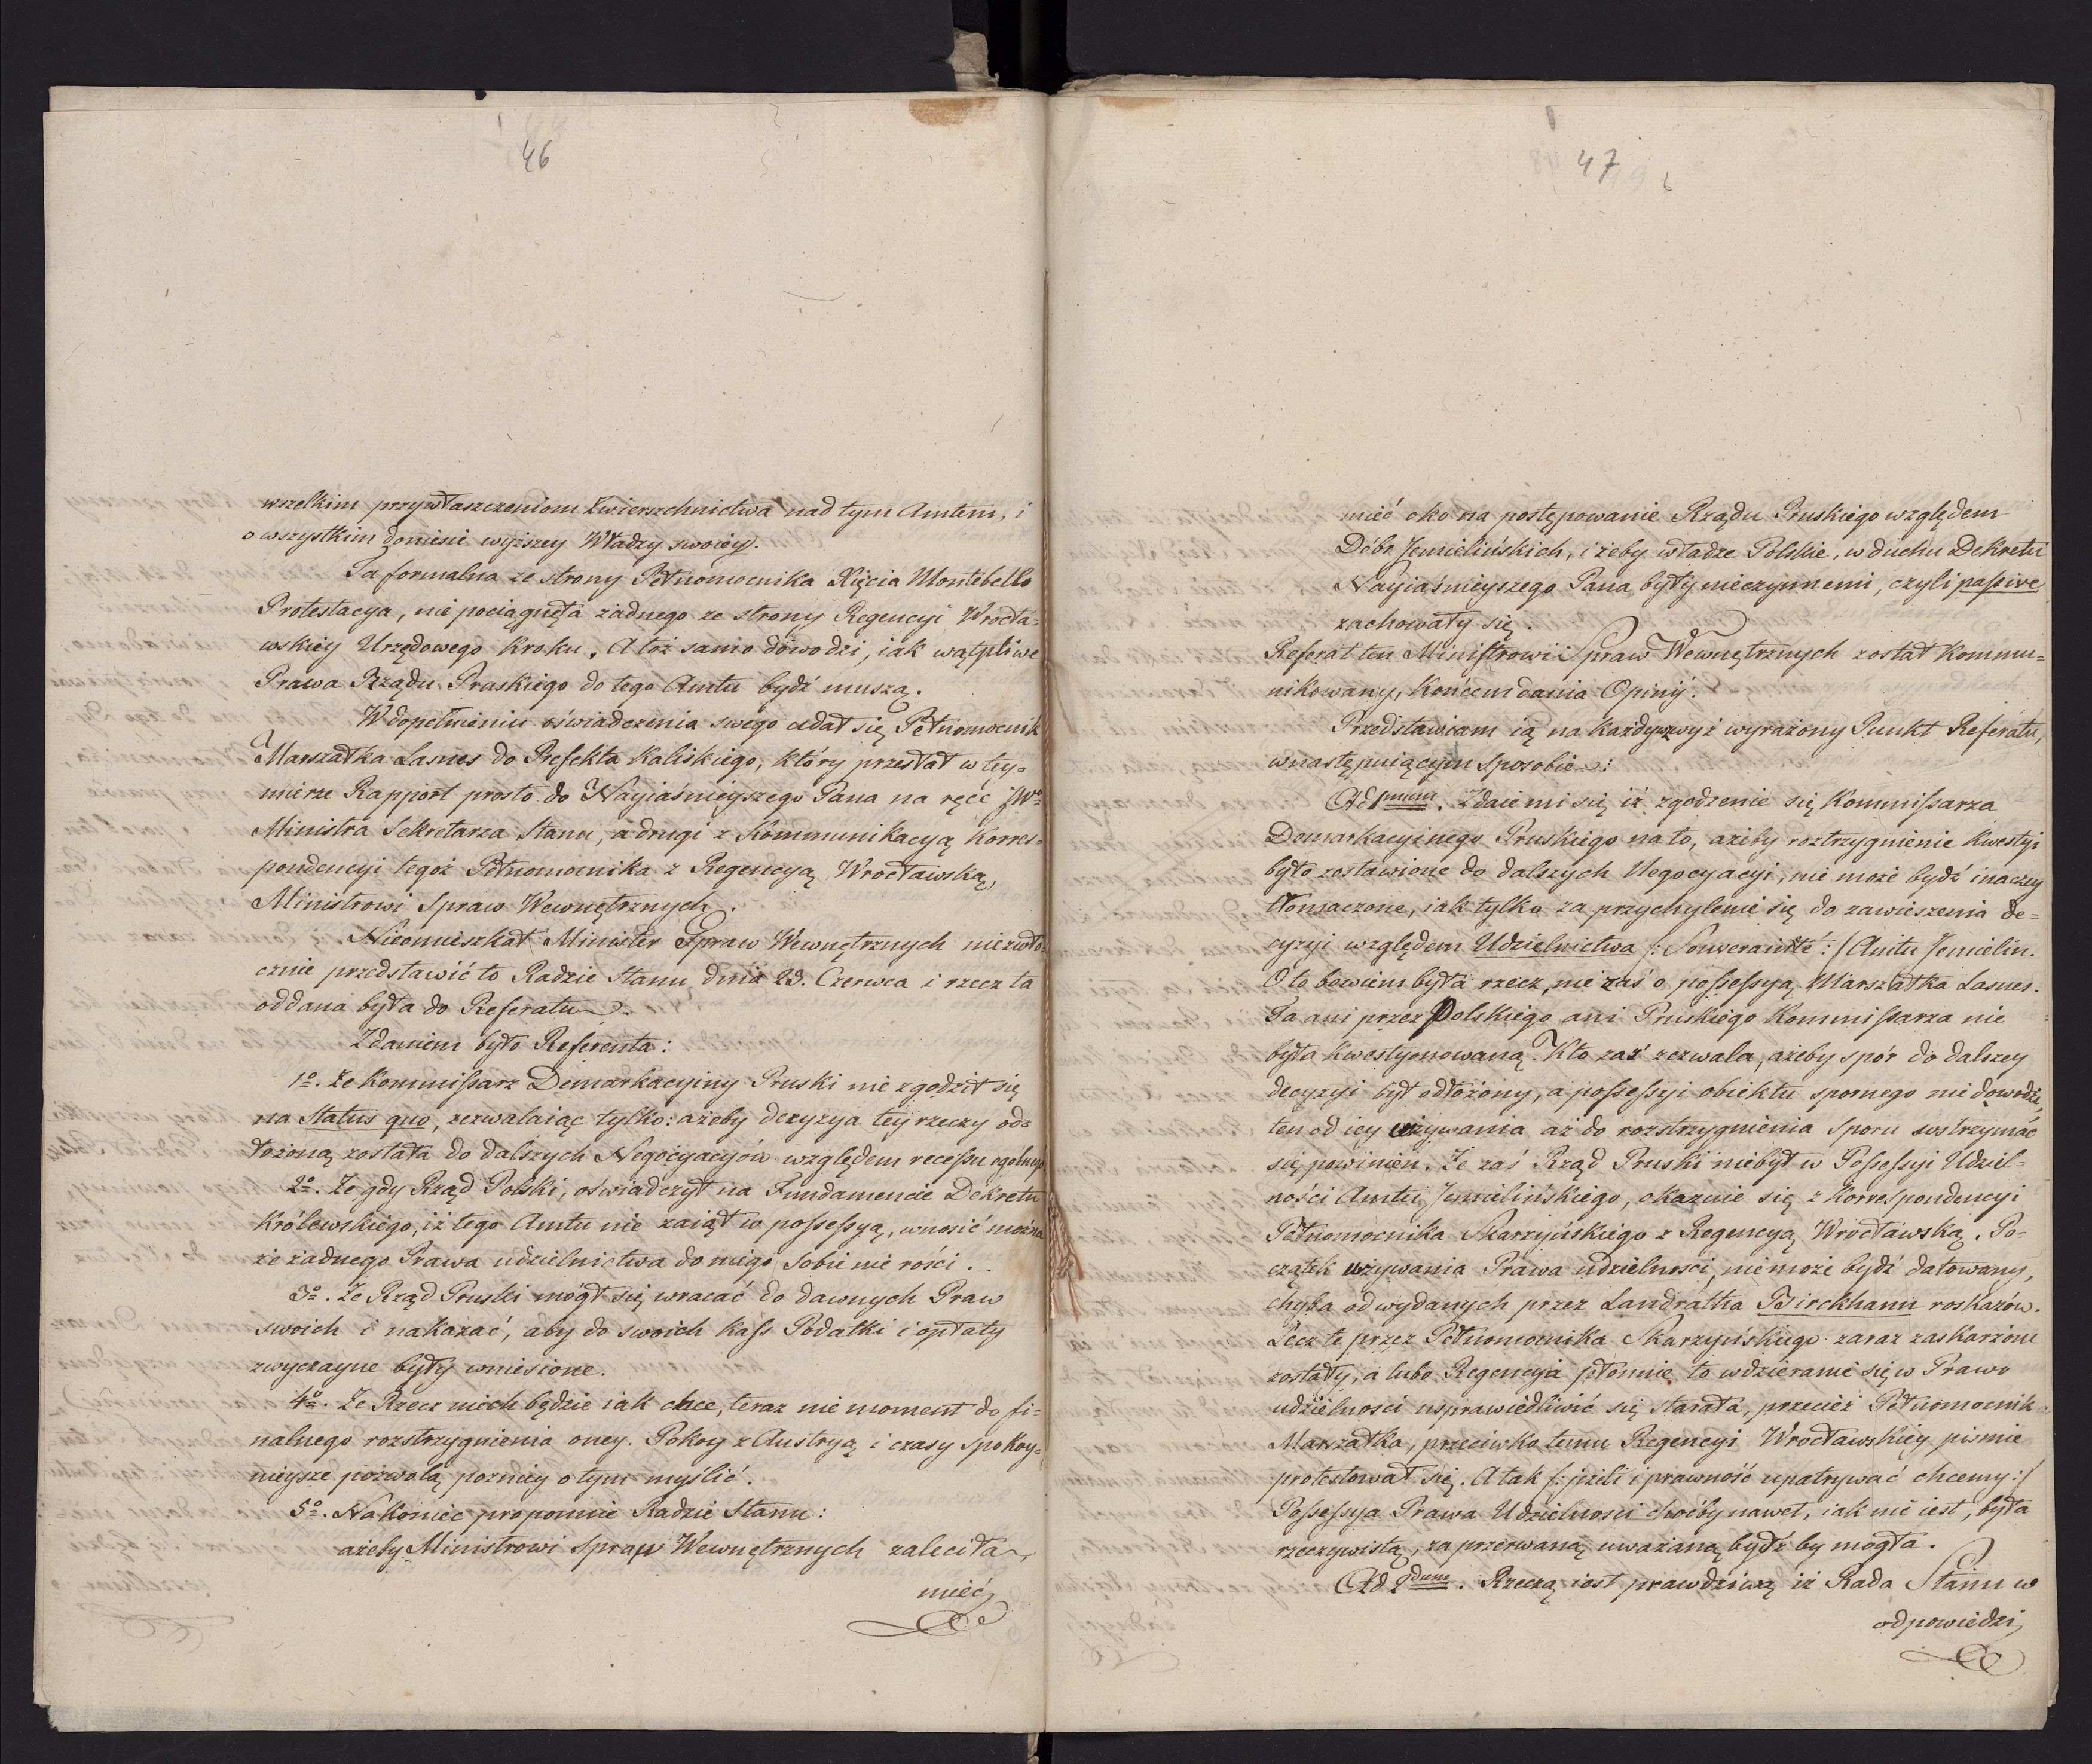 46
wszelkim przywłaszczeniom zwierzchnictwa nad tym Amtem, i
o wszystkim doniesie wyższey Władzy swoiéy.
Ta formalna ze strony Pełnomocnika Xięcia Montebello
Protestacya, nie pociągnęła żadnego ze strony Regencyi Wrocła=
wskiéy Urzędowego kroku. A toż samo dowodzi, iak wątpliwe
Prawa Rządu Pruskiego do tego Amtu bydź muszą.
W dopełnieniu oświadczenia swego udał się Pełnomocnik
Marszałka Lasnes do Prefekta Kaliskiego, który przesłał w tey=
mierze Rapport prosto do Nayiaśnieyszego Pana na ręce JWo
Ministra Sekretarza Stanu, a drugi z Kommunikacyą Korres=
pondencyi tegoż Pełnomocnika z Regencyą Wrocławską,
Ministrowi Spraw Wewnętrznych.
Nieomieszkał Minister Spraw Wewnętrznych niezwło=
cznie przedstawić to Radzie Stanu dnia 23. Czerwca i rzecz ta
oddana była do Referatu.
Zdaniem było Referenta:
1o. że Kommißarz Demarkacyiny Pruski nie zgodził się
na Status quo, zezwalaiąc tylko: ażeby decyzya tey rzeczy od=
łożoną została do dalszych Negocyacyów względem recessu ogólnego
2o. że gdy Rząd Polski, oświadczył na Fundamencie Dekretu
Królewskiego, iż tego Amtu nie zaiął w possessyą, wnosić można
że żadnego Prawa udzielnictwa do niego sobie nie rości.
3o. że Rząd Pruski mógł się wracać do dawnych Praw
swoich i nakazać, aby do swoich kass Podatki i opłaty
zwyczayne były wniesione.
4o. że Rzecz niech będzie iak chce, teraz nie moment do fi=
nalnego rozstrzygnienia oney. Pokoy z Austryą i czasy spokoy=
nieysze pozwolą pozniéy o tym myślić.
5o. Nakoniec proponuie Radzie Stanu:
ażeby Ministrowi Spraw Wewnętrznych zaleciła
mieć
47
mieć oko na postępowanie Rządu Pruskiego względem
Dóbr Jemielińskich, i żeby władze Polskie, w duchu Dekretu
Nayiaśnieyszego Pana były nieczynnemi, czyli passive
zachowały się.
Referat ten Ministrowi Spraw Wewnętrznych został kommu=
nikowany, końcem dania Opinij.
Przedstawiam ią na każdy zwyż wyrażony Punkt Referatu,
w następuiącym sposobie:
Ad 1mum. Zdaie mi się iż zgodzenie się Kommißarza
Demarkacyinego Pruskiego na to, ażeby roztrzygnienie kwestyi
było zostawione do dalszych Negocyacyi, nie może bydź inaczey
tłomaczone, iak tylko za przychylenie się do zawieszenia de=
cyzyi względem Udzielnictwa /: Souverainité :/ Amtu Jemielin.
O to bowiem była rzecz, nie zaś o possessyą Marszałka Lasnes.
Ta ani przez Polskiego ani Pruskiego Kommißarza nie
była kwestyonowaną. Kto zaś zezwala, ażeby spór do dalszey
decyzyi był odłożony, a possessyi obiektu spornego nie dowodzi,
ten od iey używania aż do rozstrzygnienia Sporu wstrzymać
się powinien. Że zaś Rząd Pruski niebył w Possessyi Udziel=
ności Amtu Jemielińskiego, okazuie się z korrespondencyi
Pełnomocnika Skarzyńskiego z Regencyą Wrocławską. Po=
czątek używania Prawa udzielności, nie może bydź datowany,
chyba od wydanych przez Landratha Birckhann roskazów.
Lecz te przez Pełnomocnika Skarzyńskiego zaraz zaskarżone
zostały, a lubo Regencya płonnie to wdzieranie się w Prawo
udzielności usprawiedliwić się starała, przecież Pełnomocnik
Marszałka, przeciwko temu Regencyi Wrocławskiéy pismie
protestował się. A tak /: jeżeli i prawność upatrywać chcemy :/
Possessya Prawa Udzielności choćby nawet, iak nie iest, była
rzeczywistą, za przerwaną uważaną bydź by mogła.
Ad 2dum. Rzeczą iest prawdziwą iż Rada Stanu w
odpowiedzi